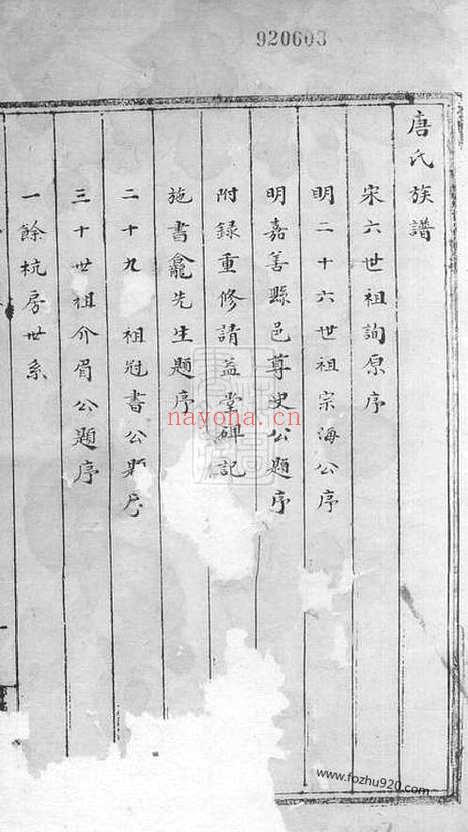 920603
唐氏族譜
宋六世祖詢原序
明二十六世祖宗海公序
明嘉善縣邑尊史公題序
附錄重修請益堂碑記
施書龕先生題序
二十九 祖冠書公題序
三十世祖介眉公題序
一餘杭房世系
nayona.cn
www.fozhu920.com